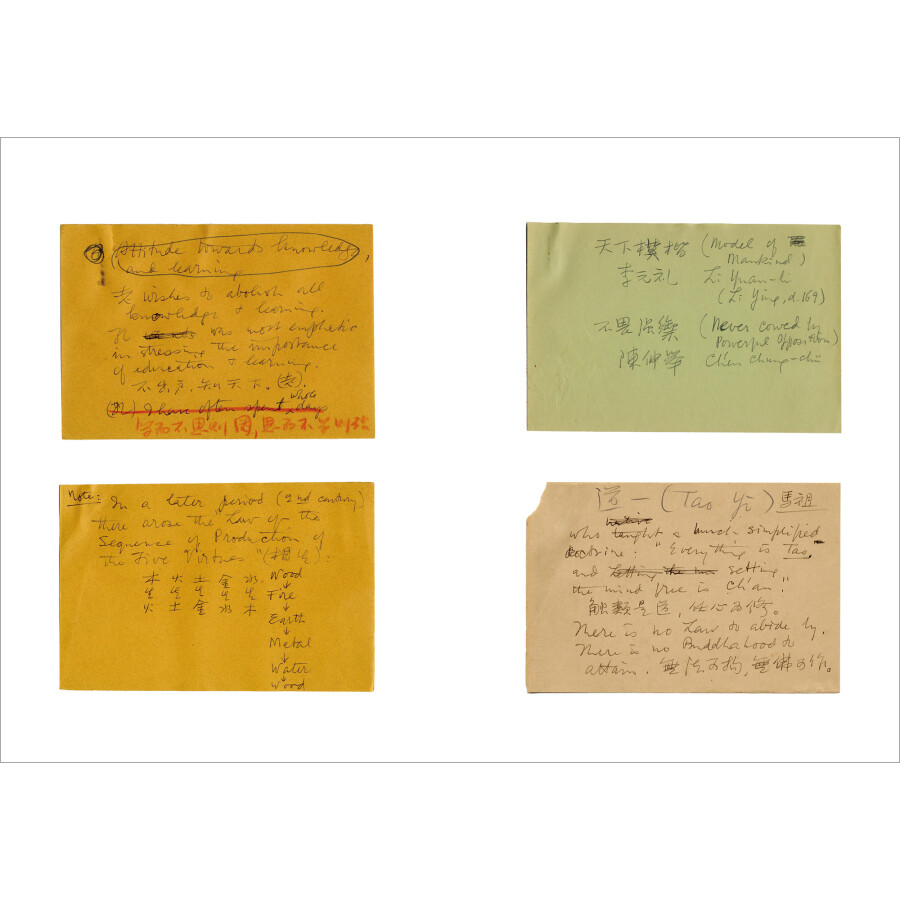 Attitude towards knowledge,
and learning
老 wishes to abolish all
knowledge & learning.
孔 was most emphatic
in stressing the importance
of education & learning.
不出户, 知天下。(老).
(孔) I have often spent whole days
学而不思则罔, 思而不学则殆
天下模楷 (Model of
Mankind)
李元礼 Li Yuan-li
(Li Ying, d. 169)
不畏强禦 (Never cowed by
Powerful Opposition)
陳仲舉 Ch'en Chung-chü
Note: In a later period (2nd century)
there arose the Law of the
Sequence of Production of
the Five Virtues "(相生).
木 火 土 金 水. Wood
生 生 生 生 生 Fire
火 土 金 水 木
Earth
Metal
Water
Wood
道一 (Tao Yi) 馬祖
who taught a much simplified
doctrine: "Everything is Tao,
and setting
the mind free is Ch'an."
触類是道, 任心为修。
There is no Law to abide by.
There is no Buddhahood to
attain. 無法可拘, 無佛可作。